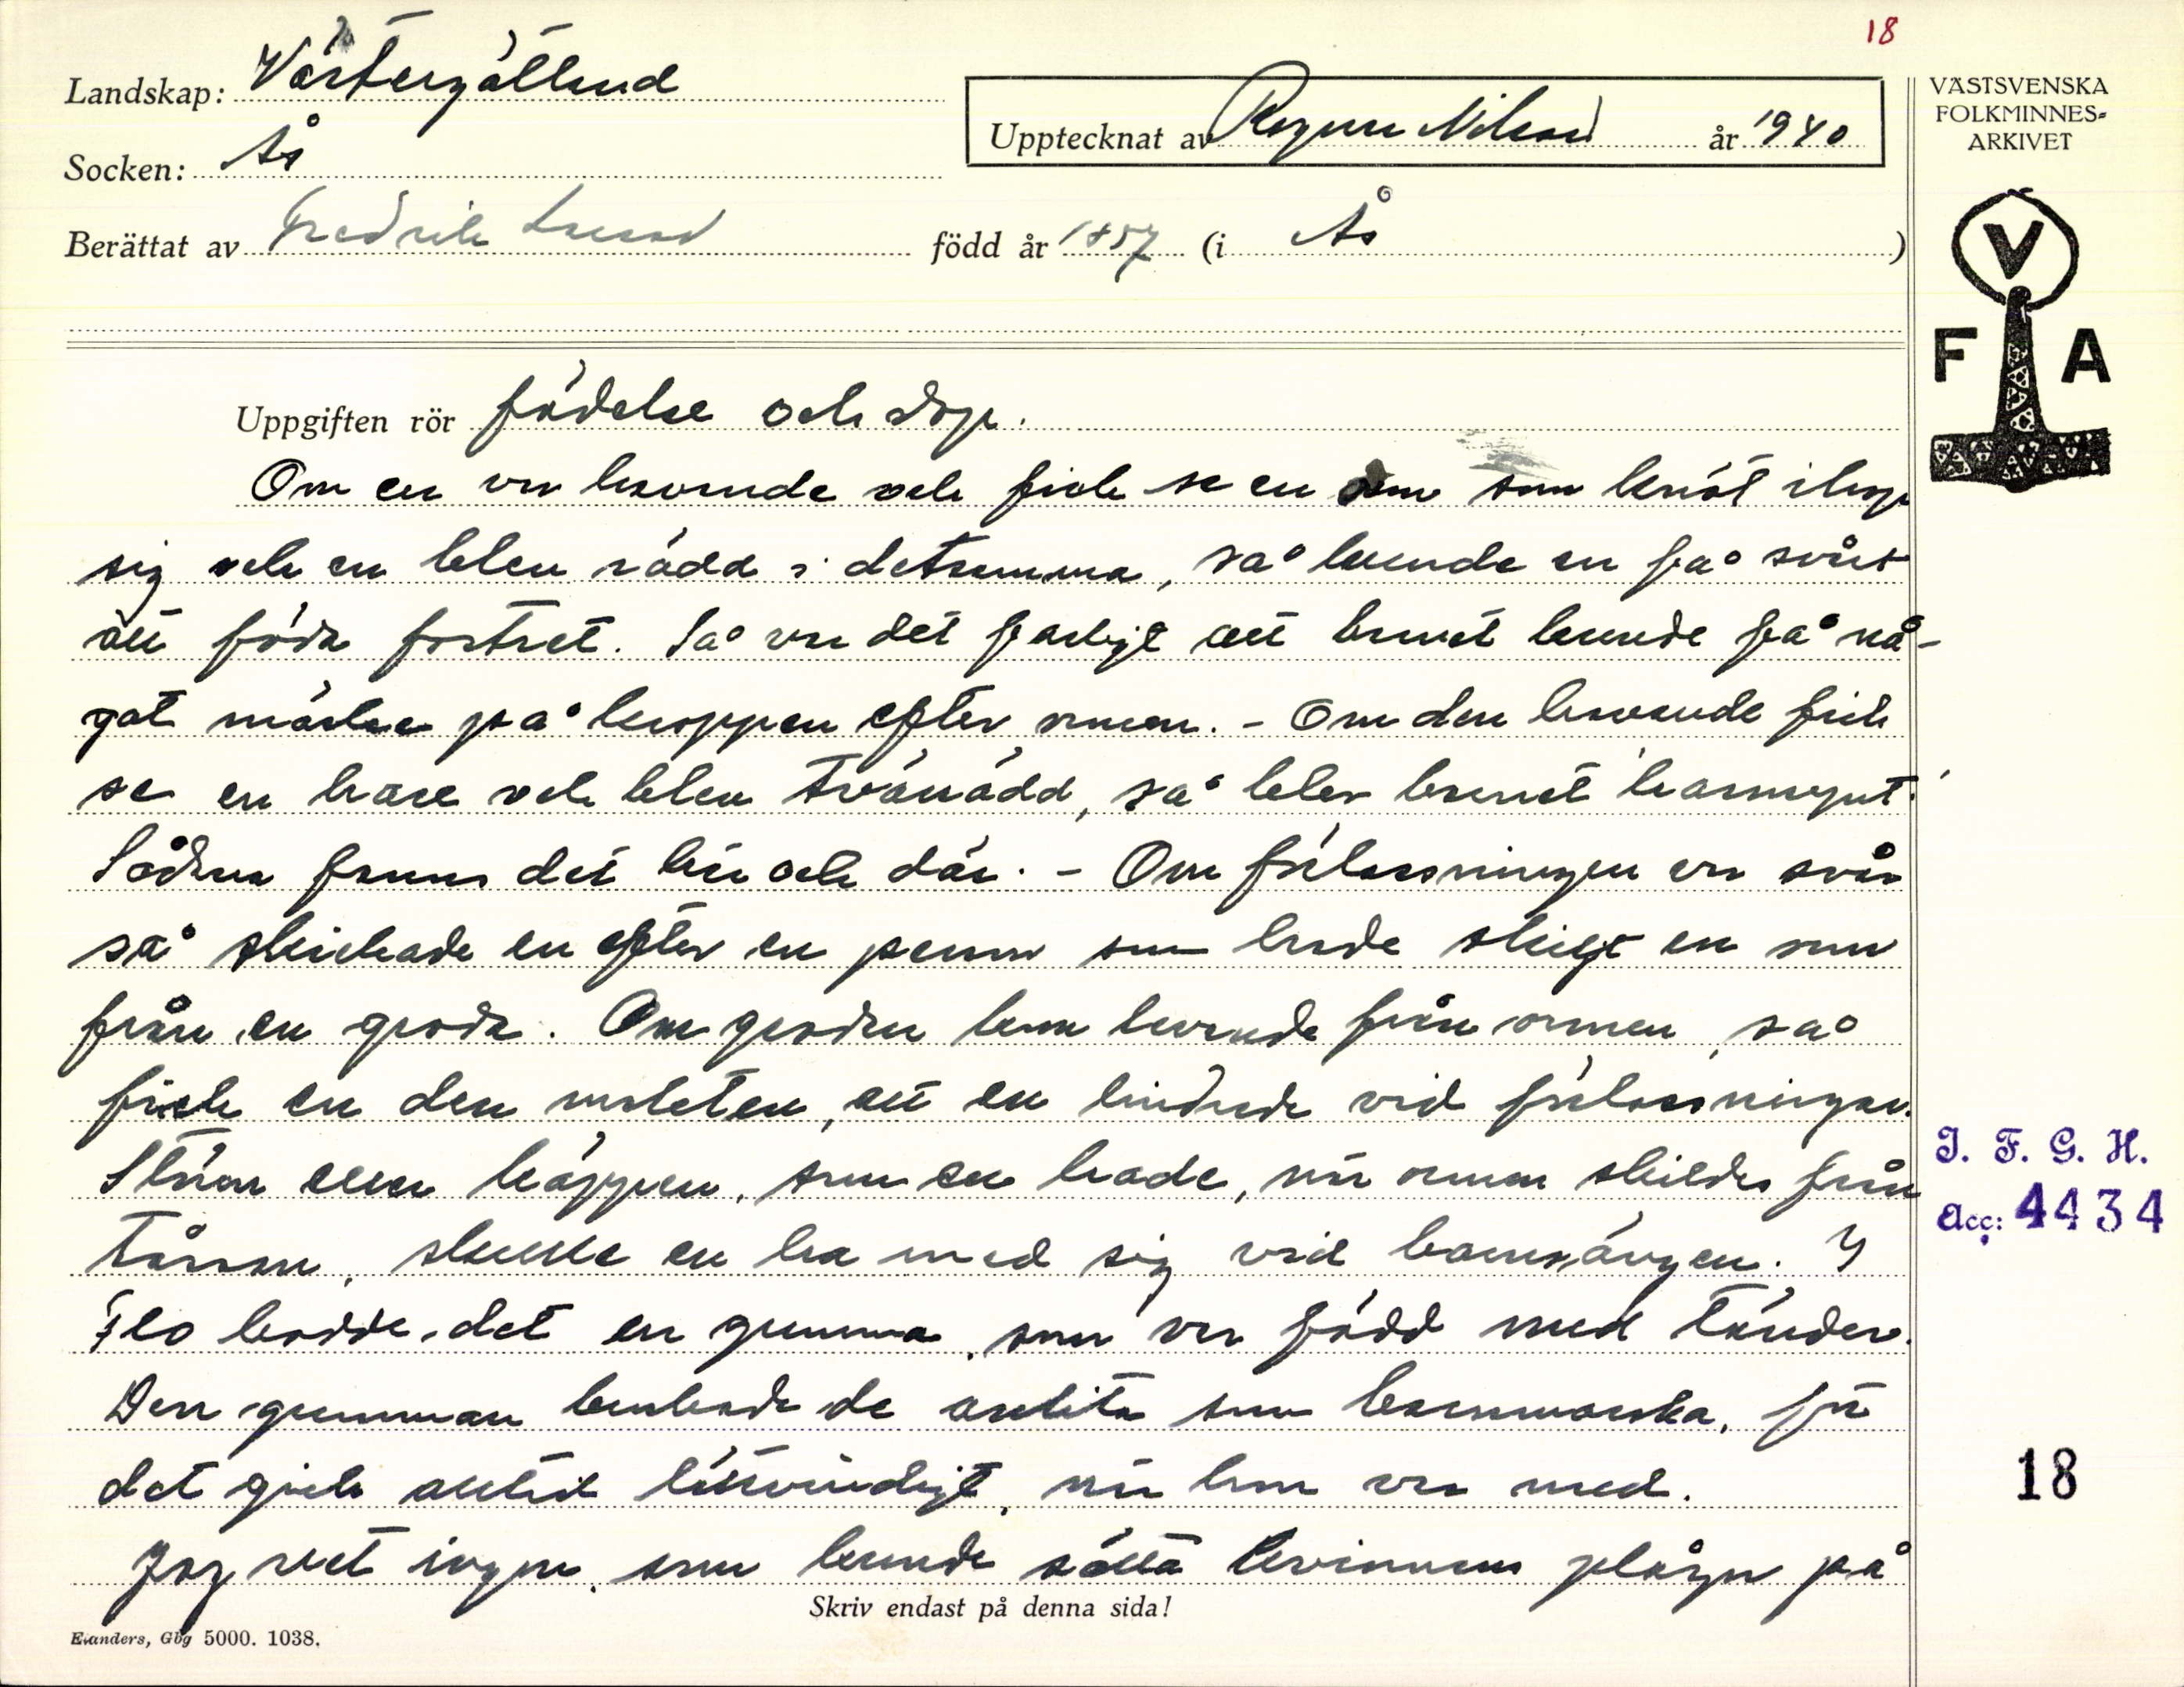 18
Landskap: Västergötland
Socken: Ås
Upptecknat av Ragnar Nilsson år 1940
VÄSTSVENSKA
FOLKMINNES=
ARKIVET
Berättat av Fredrik född år 1857 (i Ås )
V
F A
Uppgiften rör födelse och dop.
Om en var havande och fick se en orm som knöt ihop
sig och en blev rädd i detsamma, så kunde en få svårt
att föda fostret. Så var det farligt att barnet kunde få nå-
got märke på kroppen efter ormen. - Om den havande fick
se en hare och blev rädd, så blev barnet harmynt.
Sådana fanns det här och där. - Om förlossningen var svår
så skickade en efter en person som hade skiljt en orm
från en groda. Om grodan kom levande från ormen, så
fick en den makten, att en lindrade vid förlossningar.
Stören eller käppen, som en hade, när ormen skildes från
tåssan, skulle en ha med sig vid barnsängen. I
Flo bodde det en gumma, som var född med tänder.
Den gumman brukade de anlita som barnmorska, för
det gick alltid lättvindigt, när hon var med.
Jag vet ingen, som kunde sätta kvinnans plågor på
Skriv endast på denna sida!
Elanders, Gbg 5000. 1038.
I. F. G. H.
Acc: 4434
18